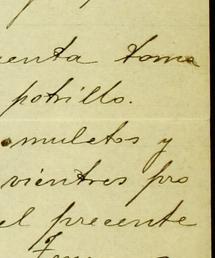 enta toma
potrillo.
muletos y
vientres pro
el precente